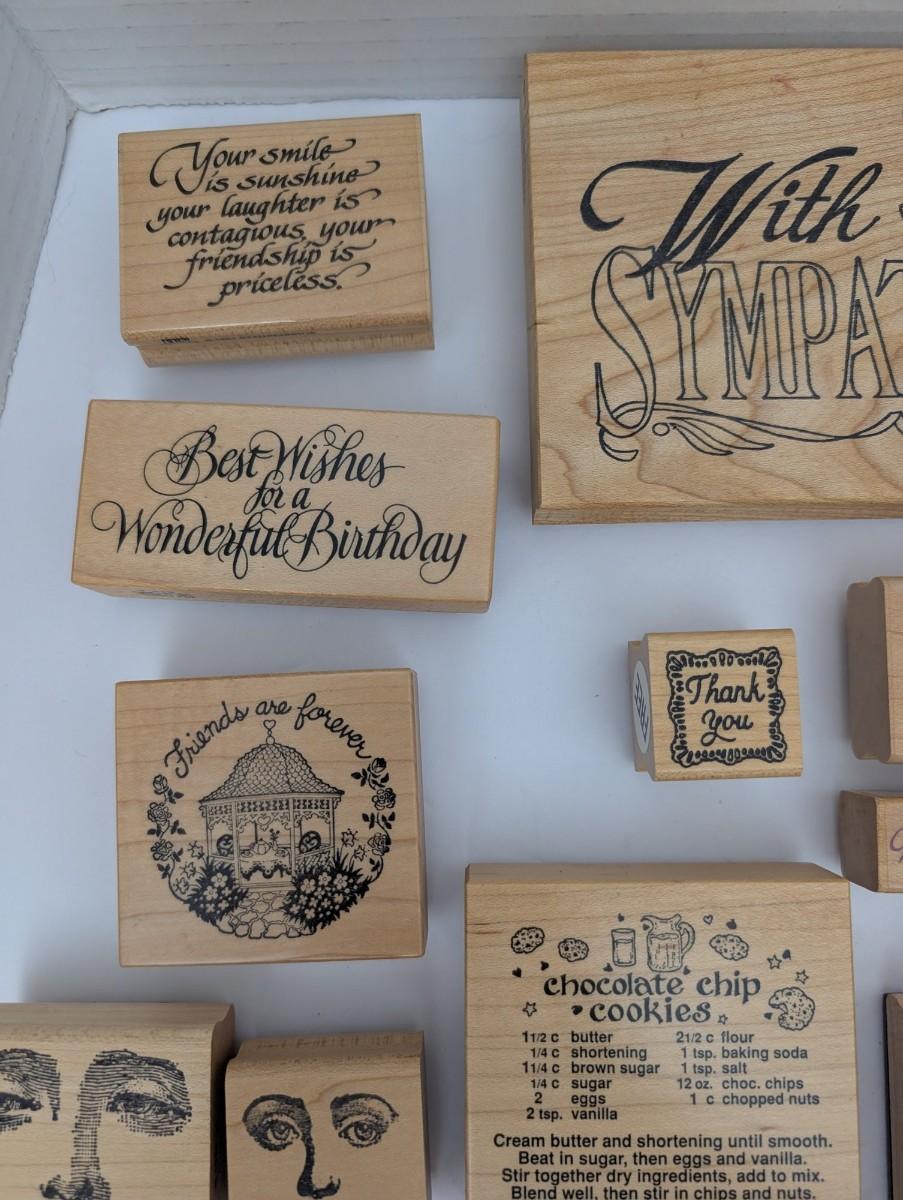 Your smile
is sunshine
your laughter is
contagious, your
friendship is
priceless.
With
SYMPAT
Best Wishes
for a
Wonderful Birthday
Thank
You
Friends are forever
chocolate chip
cookies
1 1/2 c butter
1/4 c shortening
1 1/4 c brown sugar
1/4 c sugar
2 eggs
2 tsp. vanilla
2 1/2 c flour
1 tsp. baking soda
1 tsp. salt
12 oz. choc. chips
1 c chopped nuts
Cream butter and shortening until smooth.
Beat in sugar, then eggs and vanilla.
Stir together dry ingredients, add to mix.
Blend well, then stir in chips and nuts.